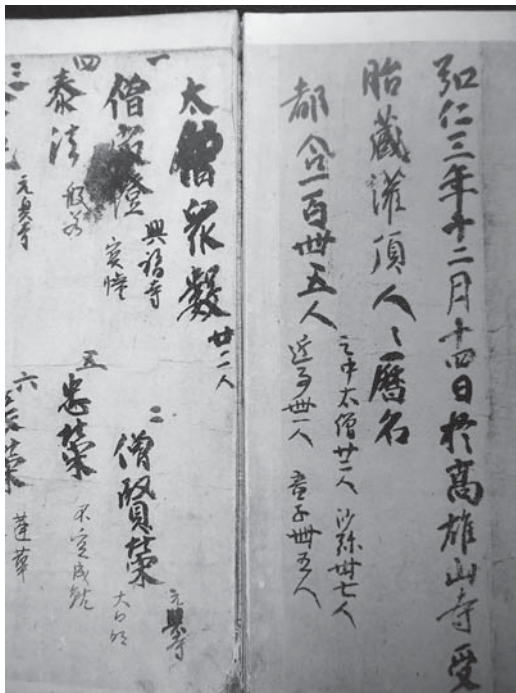 弘仁三年十二月十四日於高雄山寺受
胎藏灌頂人々曆名
都合一百卌五人
之中太僧廿二人 沙弥卌七人
近事卌一人 童子卌五人
太僧衆數 廿二人
一
僧 澄 興福寺
二
僧賢榮 元興寺
四
泰法 般若
五
忠榮 不空成就
三
元興寺
六
榮 蓮華